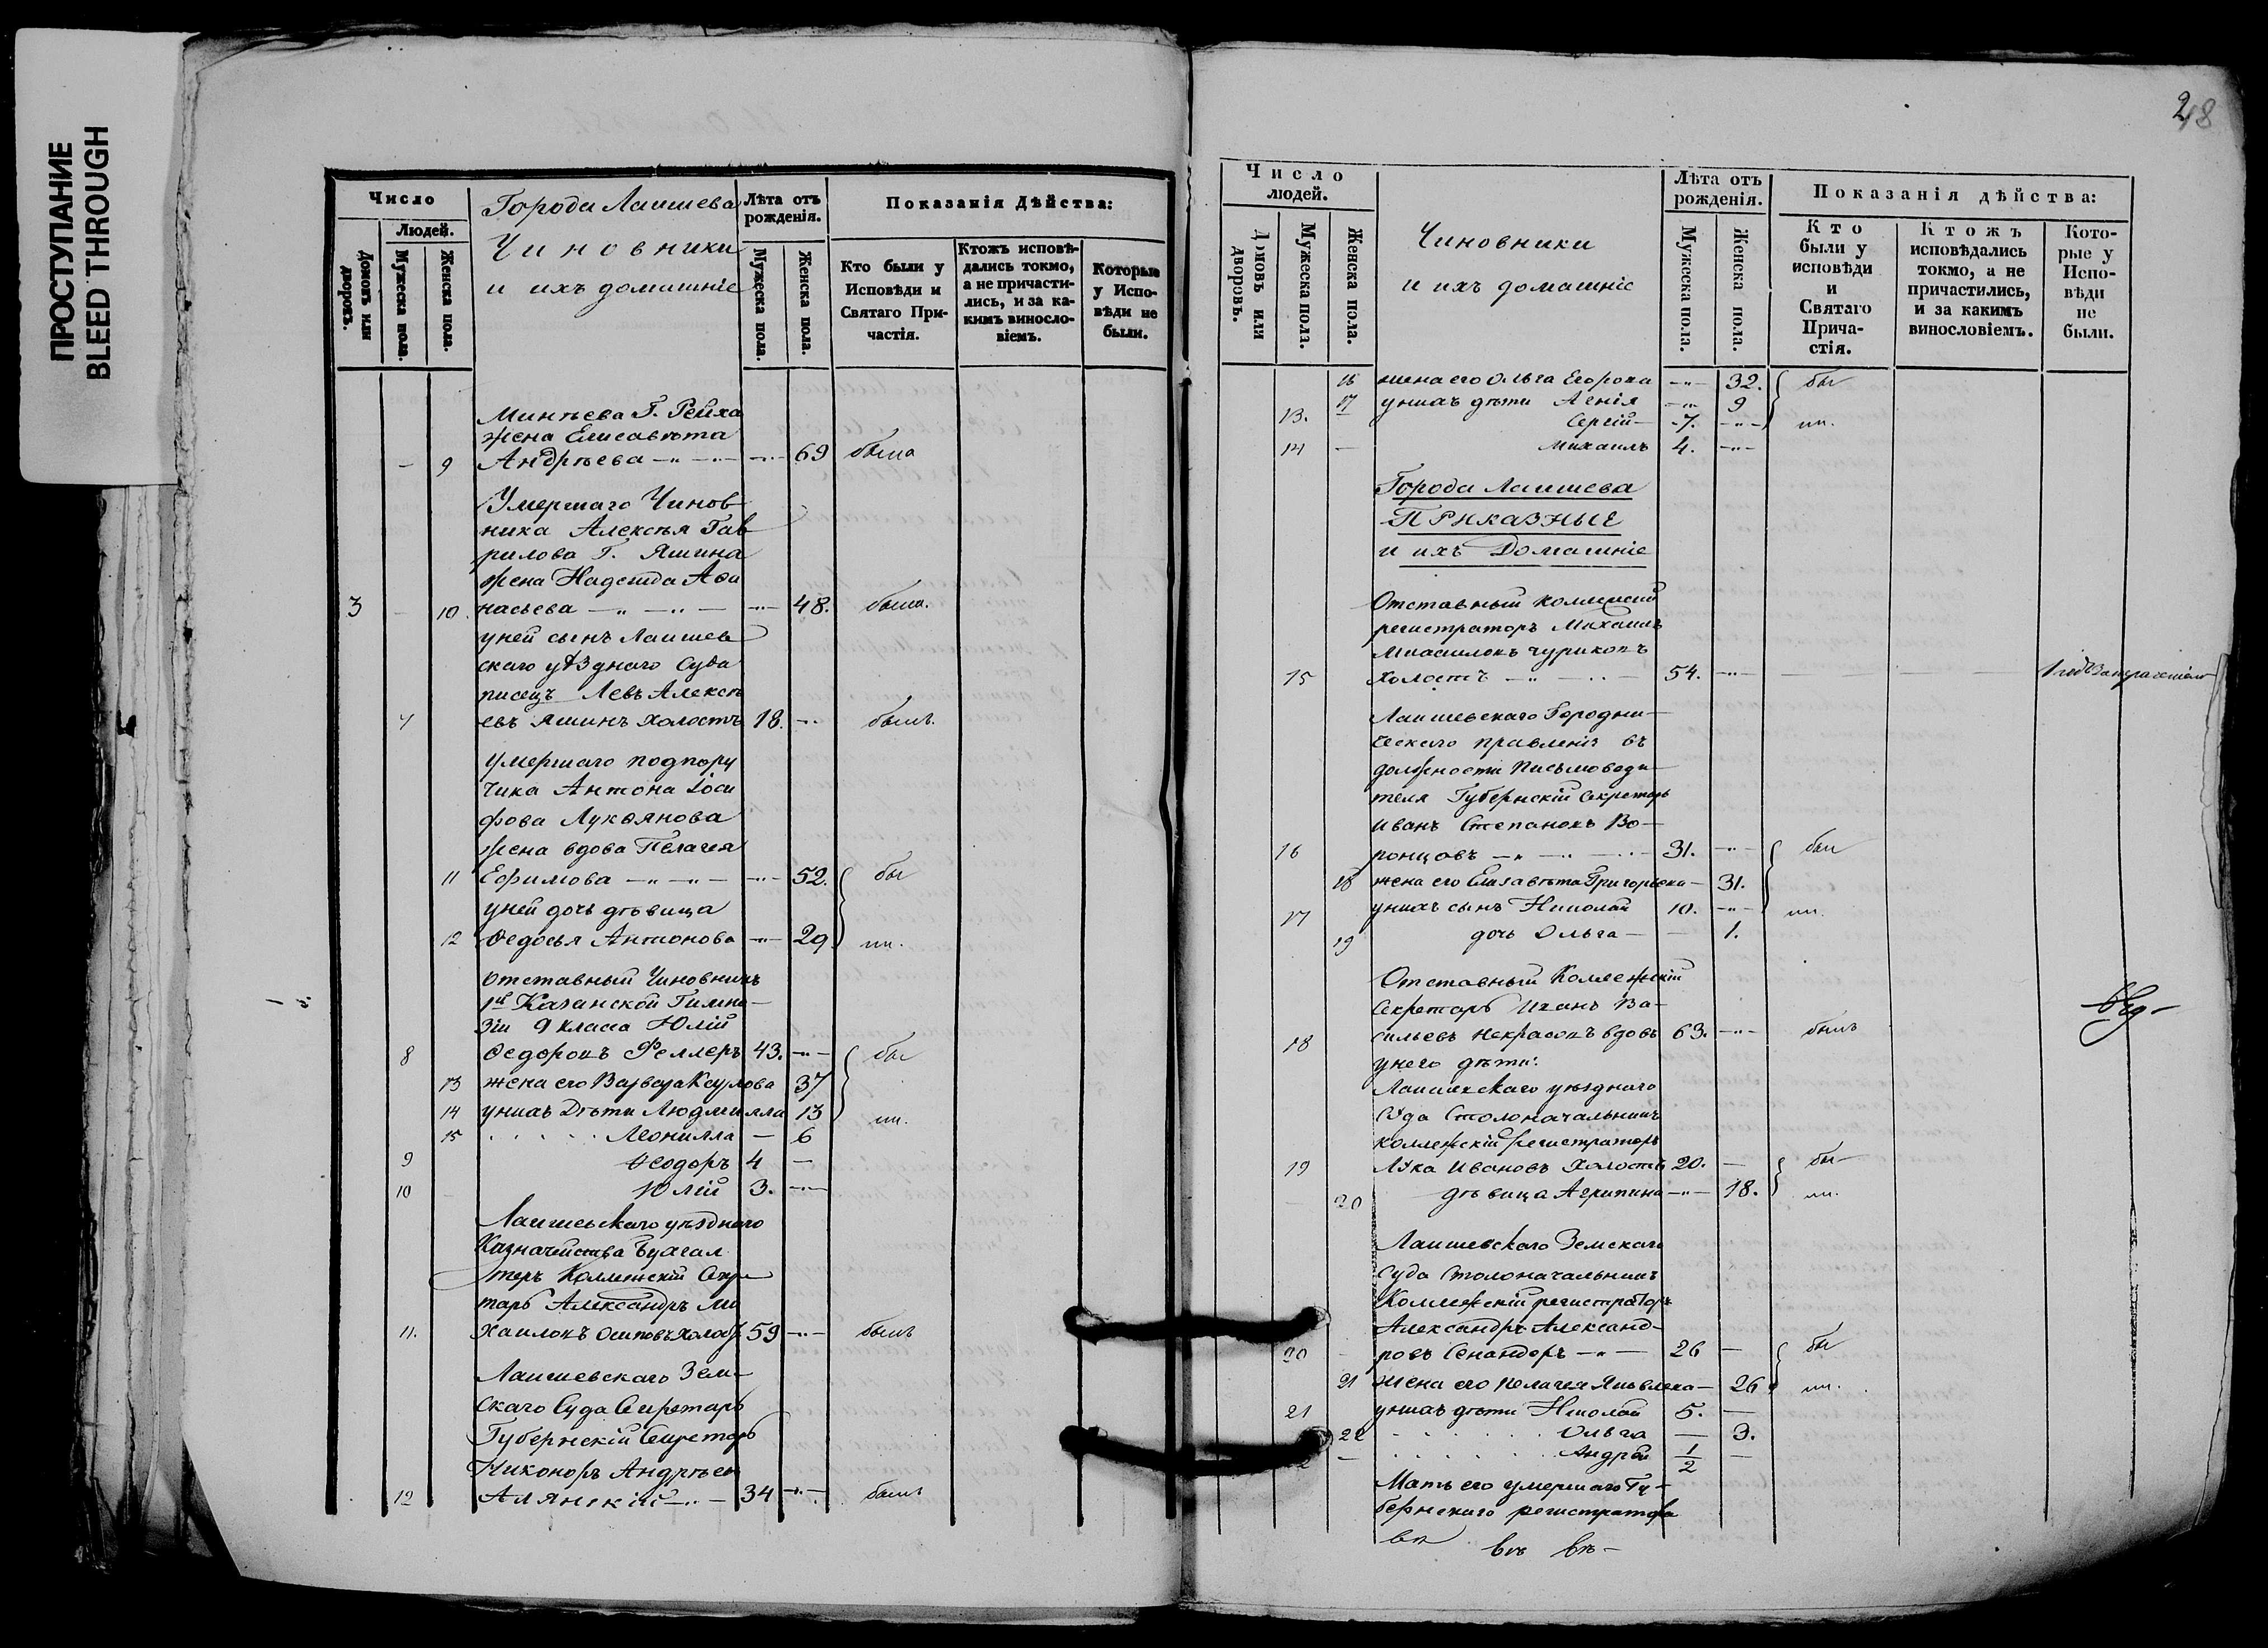 ПРОСТУПАНИЕ
BLEED THROUGH
Число
Людей.
Домовъ или дворовъ.
Мужеска пола.
Женска пола.
Города Лаишева
Чиновники
и ихъ домашнiе
Лѣта отъ рожденiя.
Мужеска пола.
Женска пола.
Показанiя Дѣйства:
Кто были у Исповѣди и Святаго Причастiя.
Ктожъ исповѣдались токмо, а не причастились, и за какимъ винословiемъ.
Которые у Исповѣди не были.
Минѣева Г. Рейха
жена Елисавѣта
9 Андрѣева 69 была
Умершаго Чинов
ника Алексѣя Гав
рилова Г. Яшина
жена Надежда Аѳа
3 10. насьева 48. была.
уней сынъ Лаишев
скаго уѣзднаго Суда
писецъ Левъ Алексѣ
7 евъ Яшинъ холостъ 18. былъ
умершаго подпору
чика Антона Iоси
фова Лукоянова
жена вдова Пелагея
11 Ефимова 52. бы
уней дочь дѣвица
12 Ѳедосья Антонова 29 ли.
Отставный Чиновникъ
1й Казанской Гимна
зiи 9 класса Юлiй
8 Ѳедоровъ Феллеръ 43. бы
13 жена его Варвара Карлова 37
14 унихъ Дѣти Людмилла 13 ли.
15 Леонилла 6
9 Ѳеодоръ 4
10 Юлiй 3.
Лаишевскаго уѣзднаго
Казначейства Бухгал
теръ Коллежскiй Секре
тарь Александръ Ми
11. хаиловъ Осиповъ холос 59 былъ
Лаишевскаго Зем-
скаго Суда Секретарь
Губернскiй Секретарь
Никоноръ Андрѣевъ
12 Алянскiй 34 былъ
28
Число людей.
Домовъ или дворовъ.
Мужеска пола.
Женска пола.
Чиновники
и ихъ домашнiе
Лѣта отъ рожденiя.
Мужеска пола.
Женска пола.
Показанiя дѣйства:
Кто были у исповѣди и Святаго Причастiя.
Ктожъ исповѣдались токмо, а не причастились, и за какимъ винословiемъ.
Которые у Исповѣди не были.
16 жена его Ольга Егорова 32. бы
17 унихъ дѣти Агнiя 9
13. Сергiй 7. ли.
14 Михаилъ 4.
Города Лаишева
Приказные
и ихъ Домашнiе
Отставный коллежскiй
регистраторъ Михаилъ
Михаиловъ Чуриковъ
15 Холостъ 54.
Лаишевскаго Городни-
ческаго правленiя въ
должности Письмоводи-
теля Губернскiй Секретарь
Иванъ Степановъ Во-
16 ронцовъ 31. бы
18 жена его Елизавѣта Григорьева 31.
17 унихъ сынъ Николай 10. ли.
19 дочь Ольга 1.
Отставный Коллежскiй
Секретарь Иванъ Ва-
18 сильевъ Некрасовъ вдовъ 63. былъ
унего дѣти:
Лаишевскаго уѣзднаго
Суда Столоначальникъ
коллежскiй регистраторъ
19 Лука Ивановъ Холостъ 20. бы
20 дѣвица Агрипина 18. ли.
Лаишевскаго Земскаго
Суда Столоначальникъ
Коллежскiй регистраторъ
Александръ Александ-
20 ровъ 26 бы
21 жена его Пелагея Яковлева 26 ли.
21 унихъ дѣти Николай 5.
22 Ольга 3.
Андрей 1/2
Мать его умершаго Гу-
бернскаго регистратора